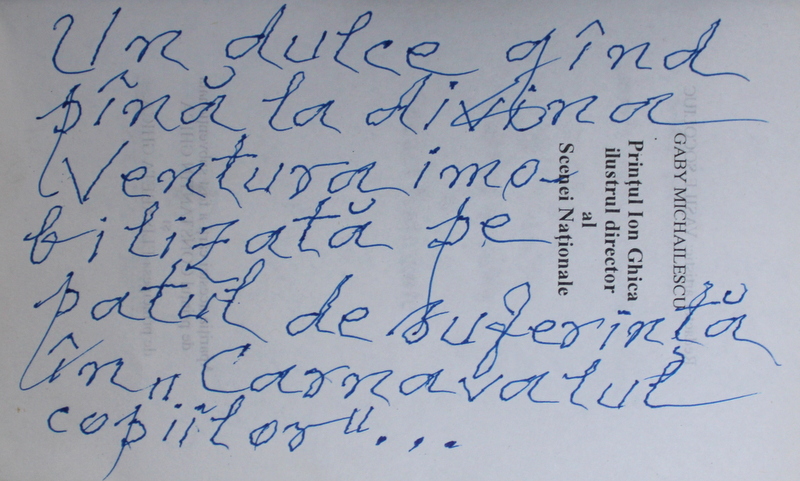 Un dulce gînd
pînă la divina
Ventura imo-
bilizată pe
patul de suferință
în „Carnavalul
copiilor"...
GABY MICHAILESCU
Prințul Ion Ghica
ilustrul director
al
Scenei Naționale